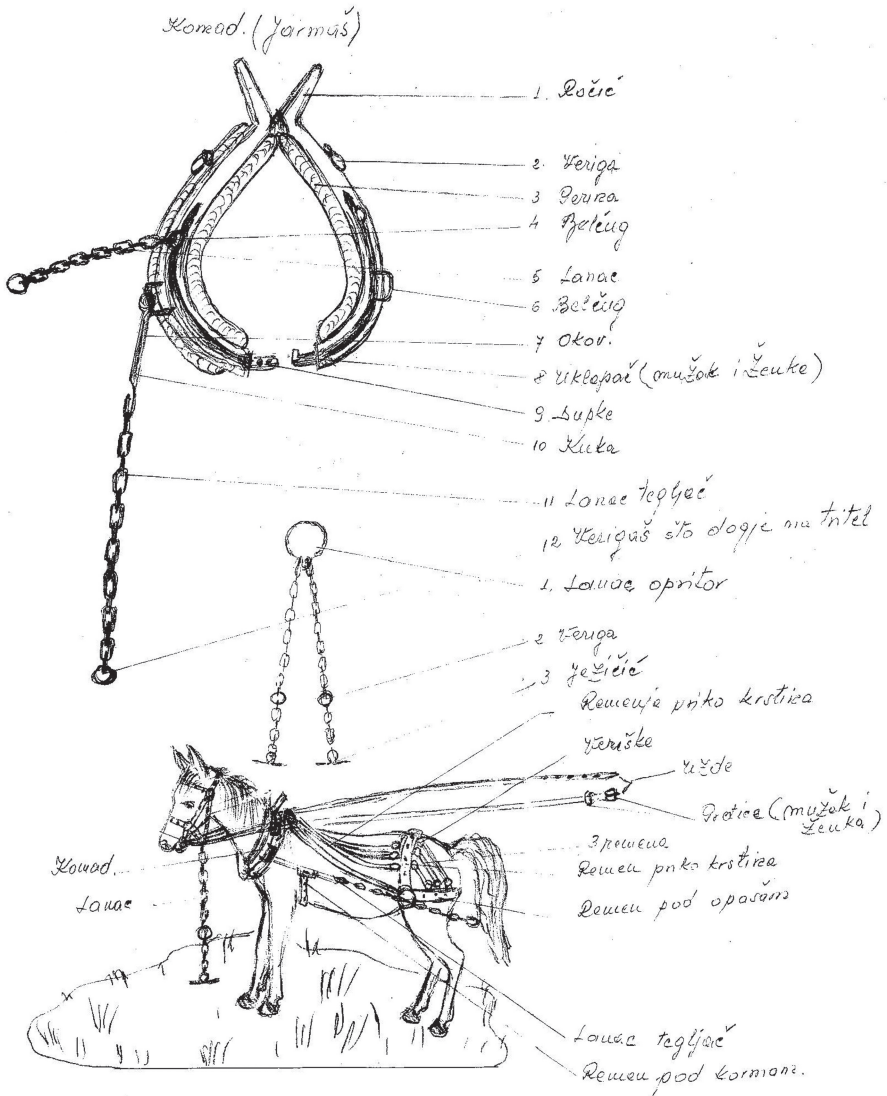 Komad. (Jarmaš)
1. Ročić
2. Veriga
3 Perina
4 Belčug
5 Lanac
6 Belčug
7 Okov.
8 Uklapač (mužak i ženka)
9. Lupke
10 Kuka
11 Lanac tegljač
12 Verigaš što dogje na tritel
1. Lanac opritor
2 Veriga
3 Ježičić
Remenje priko krstića
Veriške
Užde
(mužak i
ženka)
3 remena
Komad.
Remen priko krstića
Lanac
Remen pod opašam
Lanac tegljač
Remen pod kormanz.